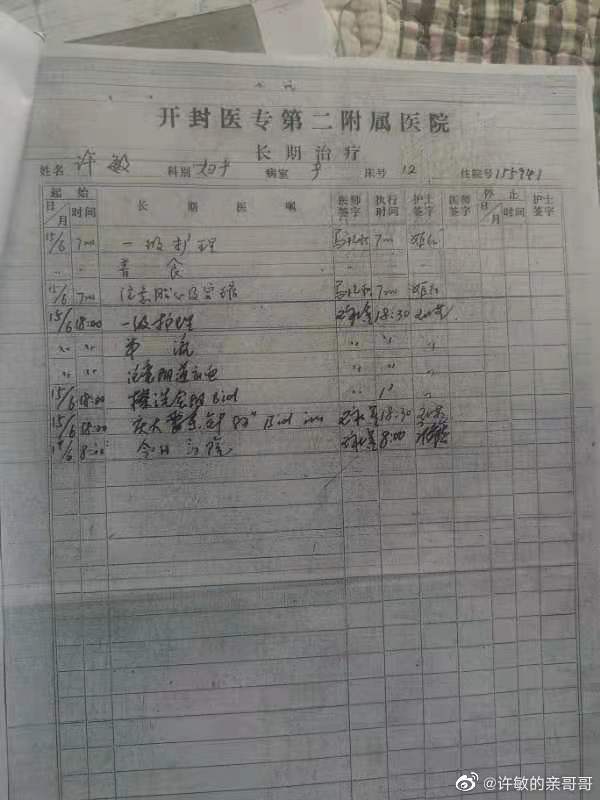 开封医专第二附属医院
长期治疗
姓名 许敏 科别 妇产 病室 产 床号 12 住院号155941
起始 长期医嘱 医师签字 执行时间 护士签字 医师签字 停止 护士签字
日/月 时间 日/月 时间
15/6 7 一级护理 7
〃 〃 普食
15/6 7 注意胎心及宫缩 7
15/6 18:00 一级护理 18:30
〃 〃 半流 〃 〃 〃
〃 〃 注意阴道出血 〃 〃 〃
15/6 18:00 擦洗会阴 Bid 〃
15/6 18:00 庆大霉素 8万 Bid im 18:30
8:00 今日出院 8:00
@许敏的亲哥哥